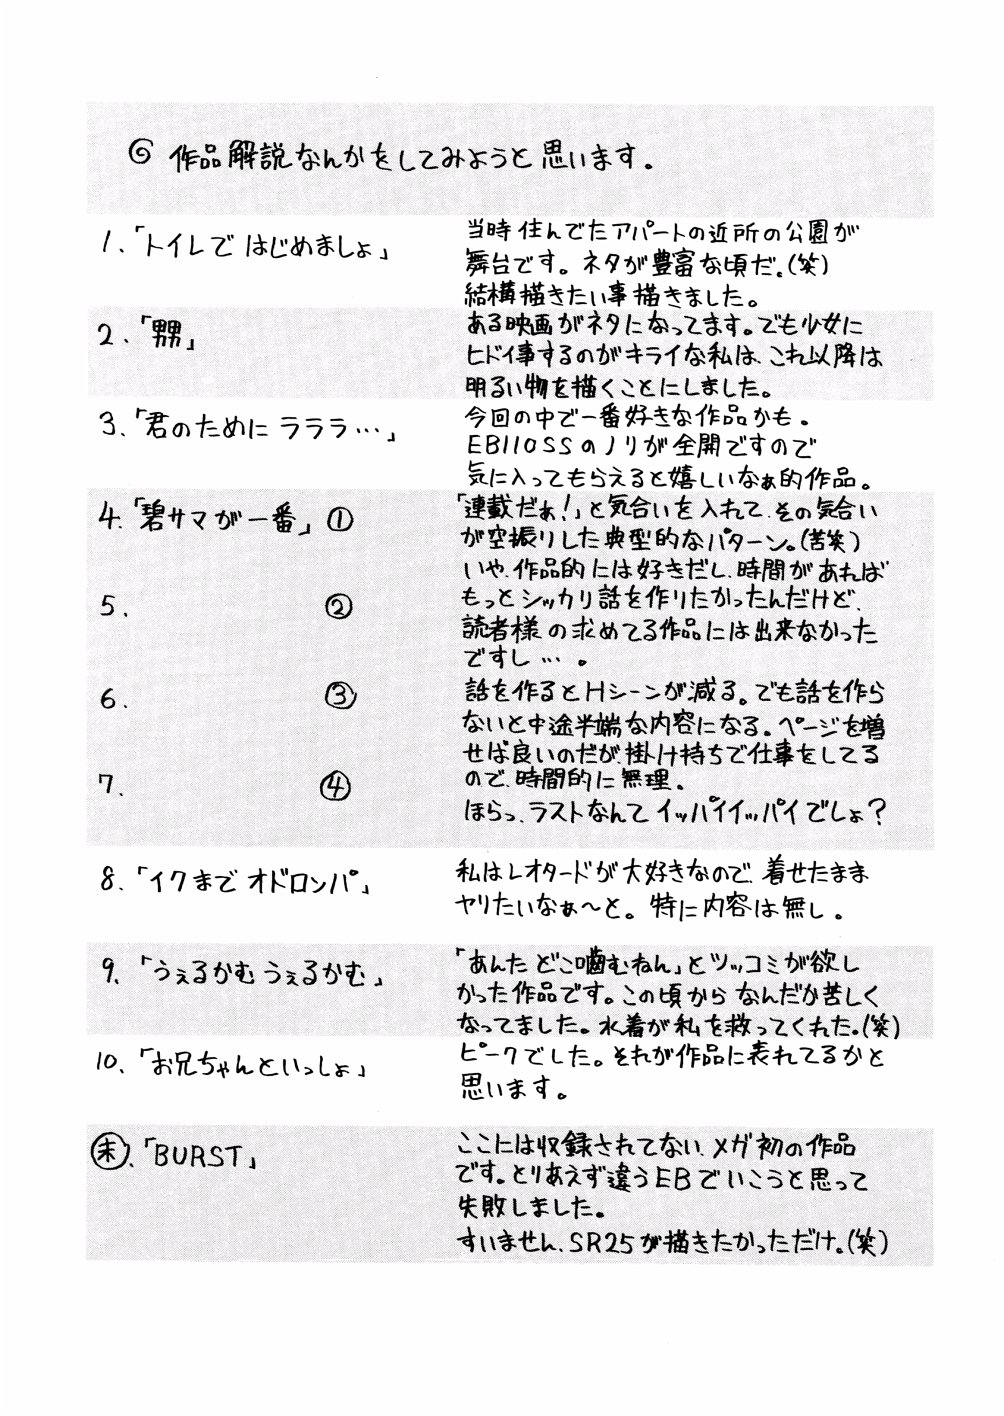 ◎ 作品解説なんかをしてみようと思います。
1、「トイレで はじめましょ」
当時住んでたアパートの近所の公園が
舞台です。ネタが豊富な頃だ。(笑)
結構描きたい事描きました。
2、「嬲」
ある映画がネタになってます。でも少女に
ヒドイ事するのがキライな私は、これ以降は
明るい物を描くことにしました。
3、「君のために ラララ…」
今回の中で一番好きな作品かも。
EB110SSのノリが全開ですので
気に入ってもらえると嬉しいなぁ的作品。
4、「碧サマが一番」①
「連載だぁ!」と気合いを入れて、その気合い
が空振りした典型的なパターン。(苦笑)
いや、作品的には好きだし、時間があれば
5、 ②
もっとシッカリ話を作りたかったんだけど、
読者様の求めてる作品には出来なかった
ですし…。
6、 ③
話を作るとHシーンが減る。でも話を作ら
ないと中途半端な内容になる。ページを増
せば良いのだが、掛け持ちで仕事をしてる
7、 ④
ので、時間的に無理。
ほらっ、ラストなんて イッパイイッパイでしょ?
8、「イクまで オドロンパ」
私はレオタードが大好きなので、着せたまま
ヤリたいなぁ〜と。特に内容は無し。
9、「うぇるかむ うぇるかむ」
「あんた どこ噛むねん」とツッコミが欲し
かった作品です。この頃から なんだか苦しく
なってました。水着が私を救ってくれた。(笑)
10、「お兄ちゃんといっしょ」
ピークでした。それが作品に表れてるかと
思います。
㊍、「BURST」
ここには収録されてない、メグ初の作品
です。とりあえず違うEBでいこうと思って
失敗しました。
すいません、SR25が描きたかっただけ。(笑)